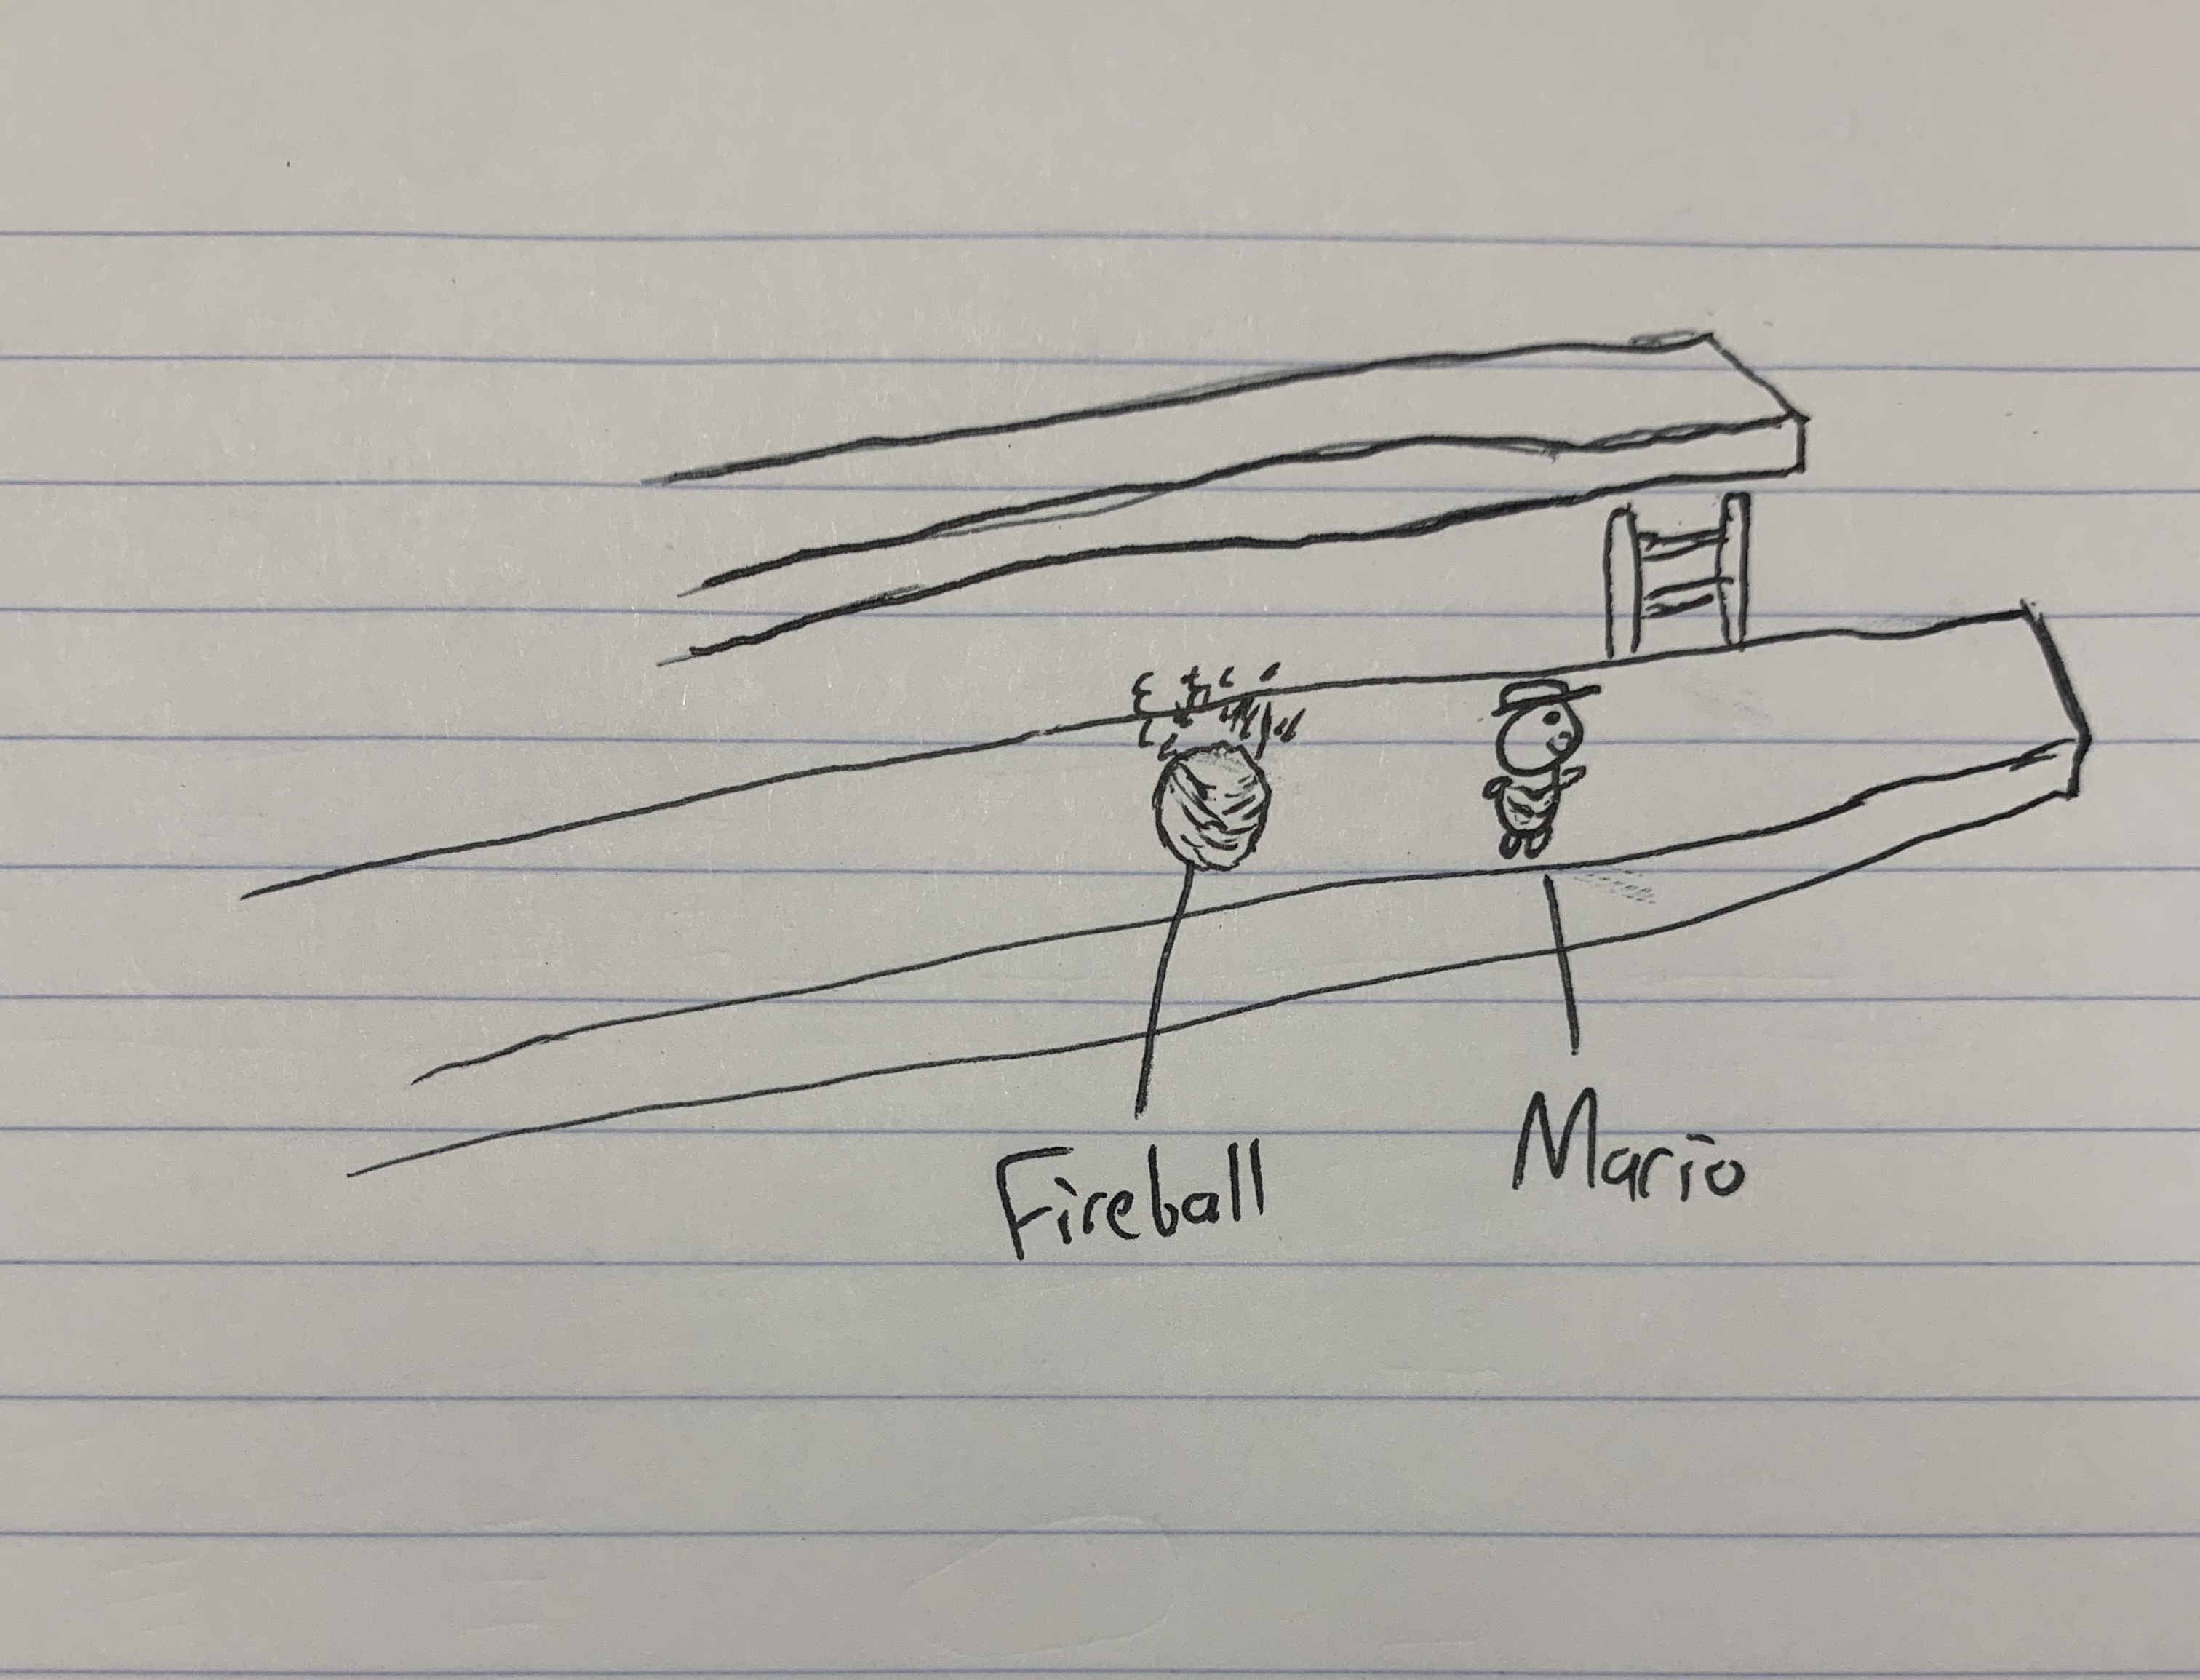 Fireball
Mario